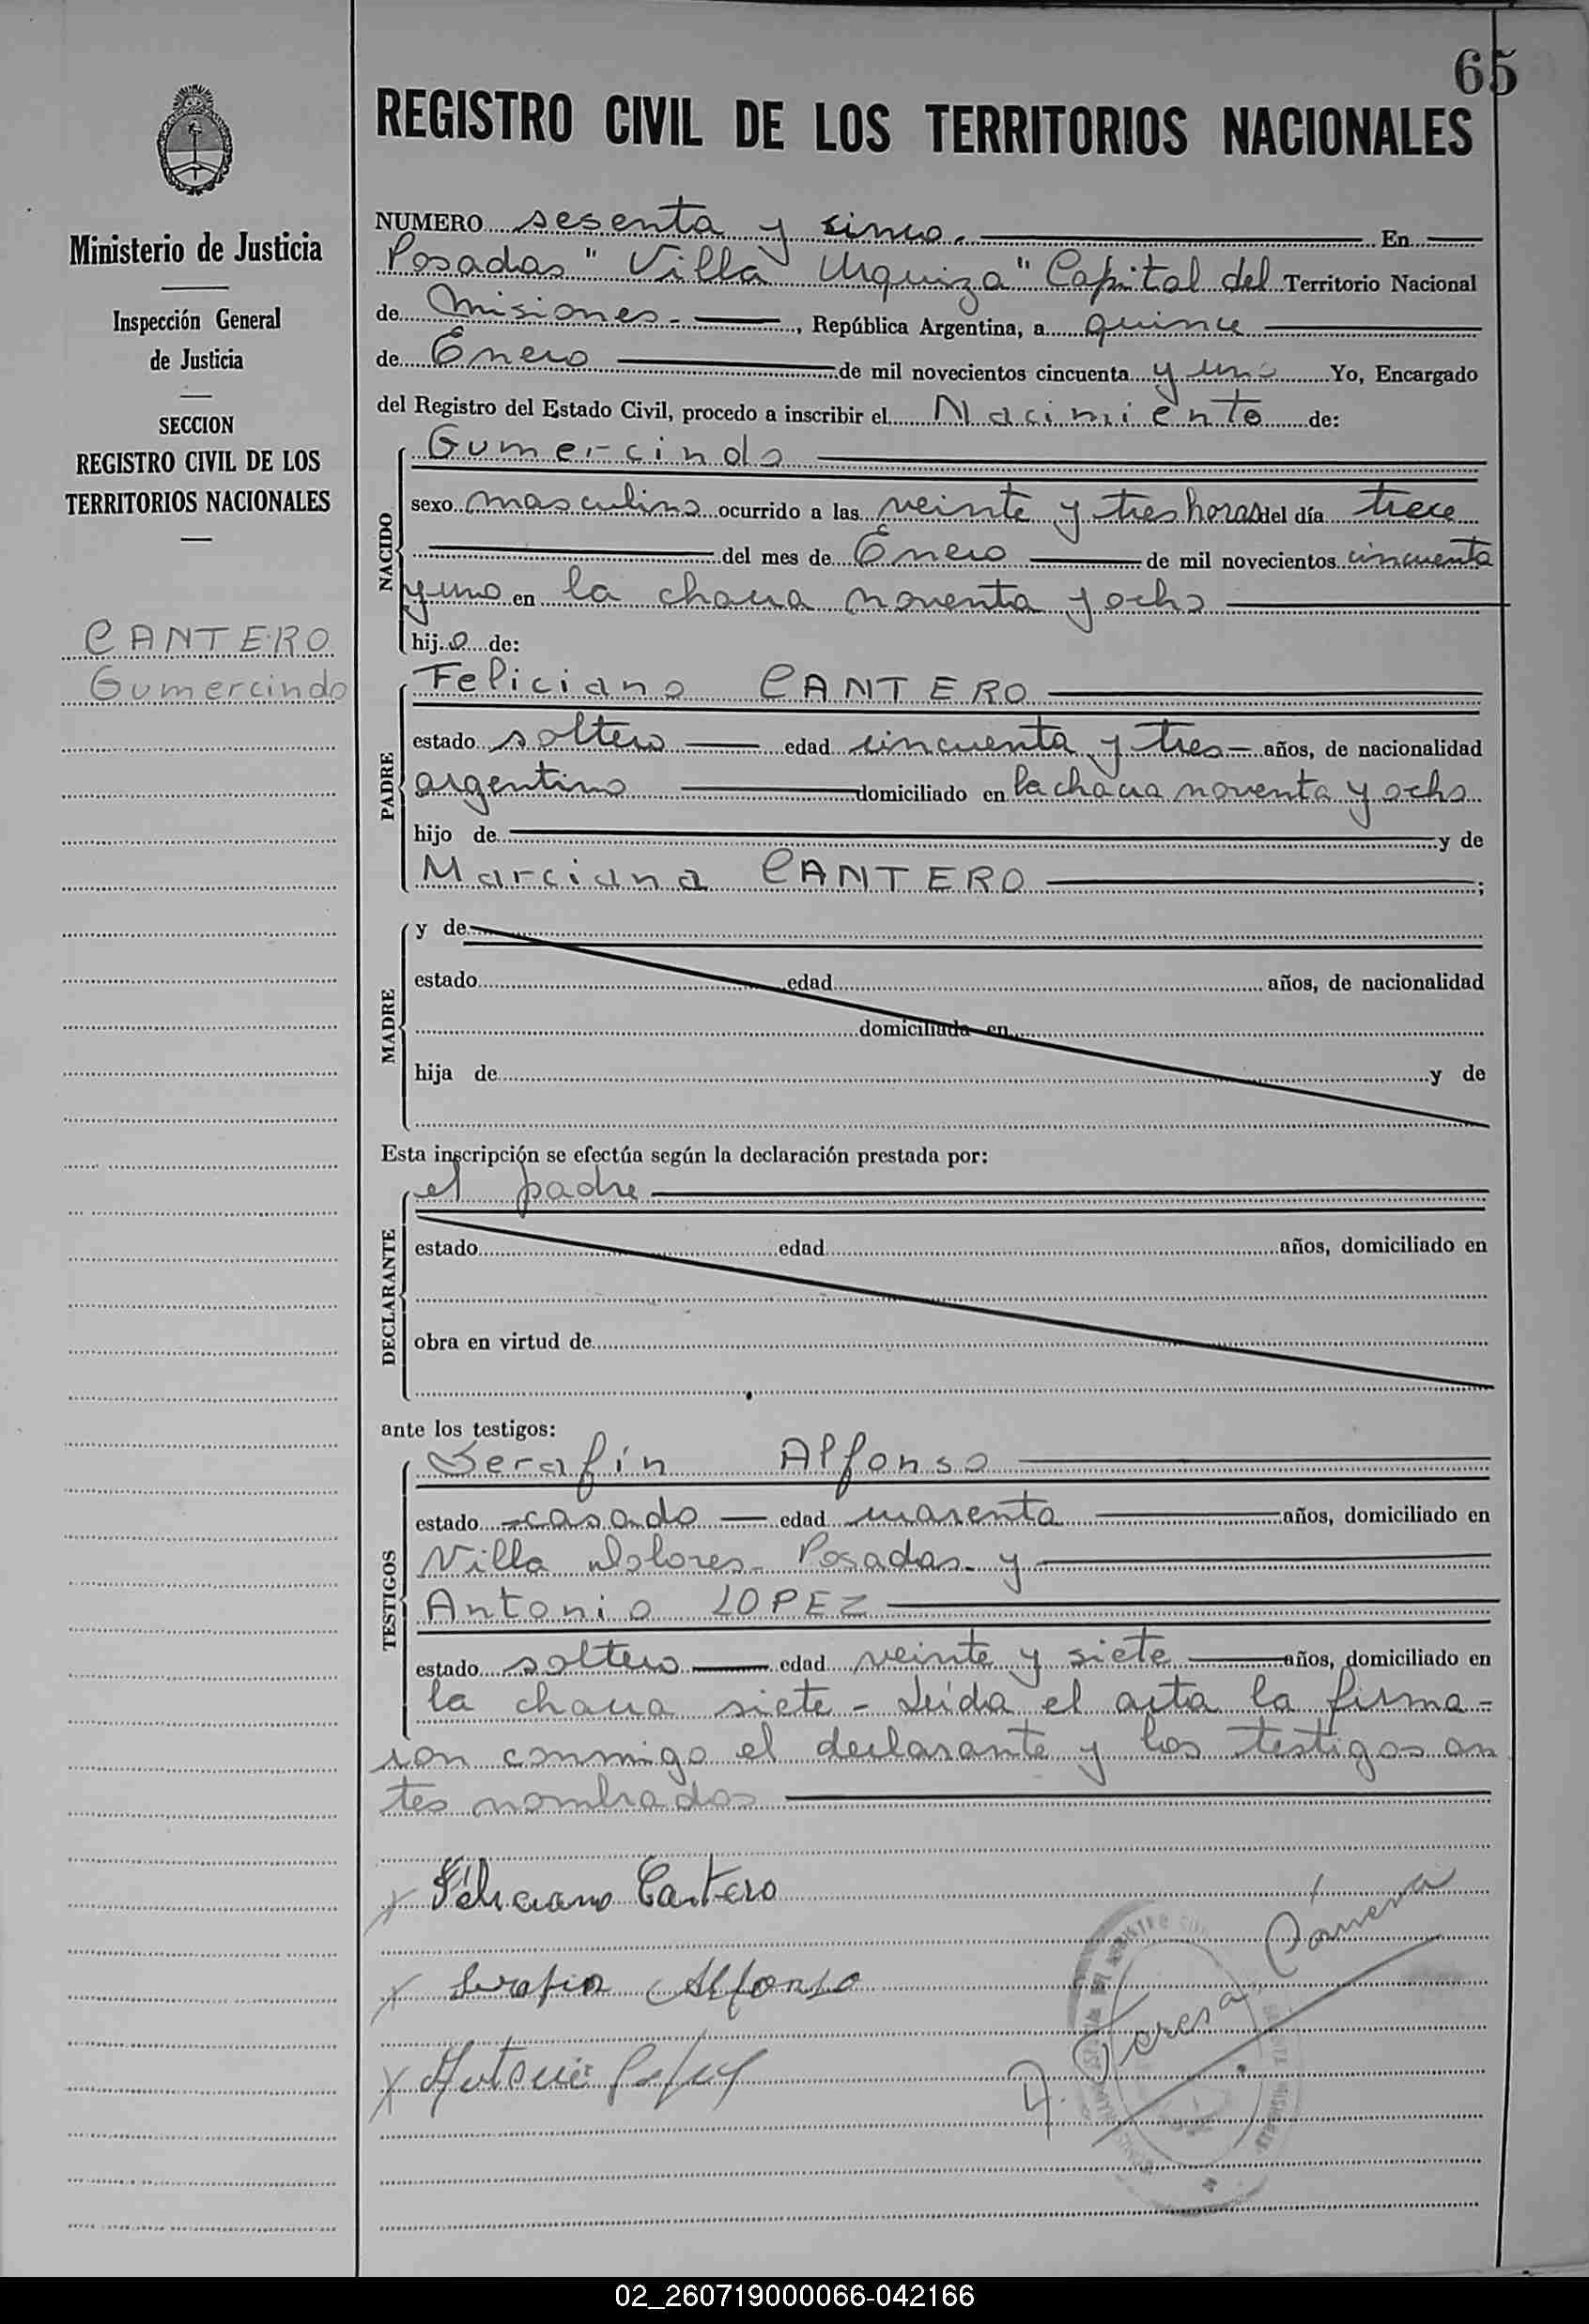 65
REGISTRO CIVIL DE LOS TERRITORIOS NACIONALES
Ministerio de Justicia
Inspección General
de Justicia
SECCION
REGISTRO CIVIL DE LOS
TERRITORIOS NACIONALES
CANTERO
Gumercindo
NUMERO sesenta y cinco. En
Posadas "Villa Urquiza" Capital del Territorio Nacional
de Misiones - , República Argentina, a quince
de Enero de mil novecientos cincuenta y uno Yo, Encargado
del Registro del Estado Civil, procedo a inscribir el Nacimiento de:
NACIDO
Gumercindo
sexo masculino ocurrido a las veinte y tres horas del día trece
del mes de Enero de mil novecientos cincuenta
y uno en la chacra noventa y ocho
hijo de:
PADRE
Feliciano CANTERO
estado soltero edad cincuenta y tres años, de nacionalidad
argentino domiciliado en la chacra noventa y ocho
hijo de y de
Marciana CANTERO ;
MADRE
y de
estado edad años, de nacionalidad
domiciliada en
hija de y de
Esta inscripción se efectúa según la declaración prestada por:
DECLARANTE
el padre
estado edad años, domiciliado en
obra en virtud de
ante los testigos:
TESTIGOS
Serafín Alfonso
estado casado edad cuarenta años, domiciliado en
Villa Dolores - Posadas - y
Antonio LOPEZ
estado soltero edad veinte y siete años, domiciliado en
la chacra siete - Leída el acta la firma=
ron conmigo el declarante y los testigos an
tes nombrados
x Feliciano Cantero
x Serafin Alfonso
x Antonio Lopez
Teresa
02_260719000066-042166